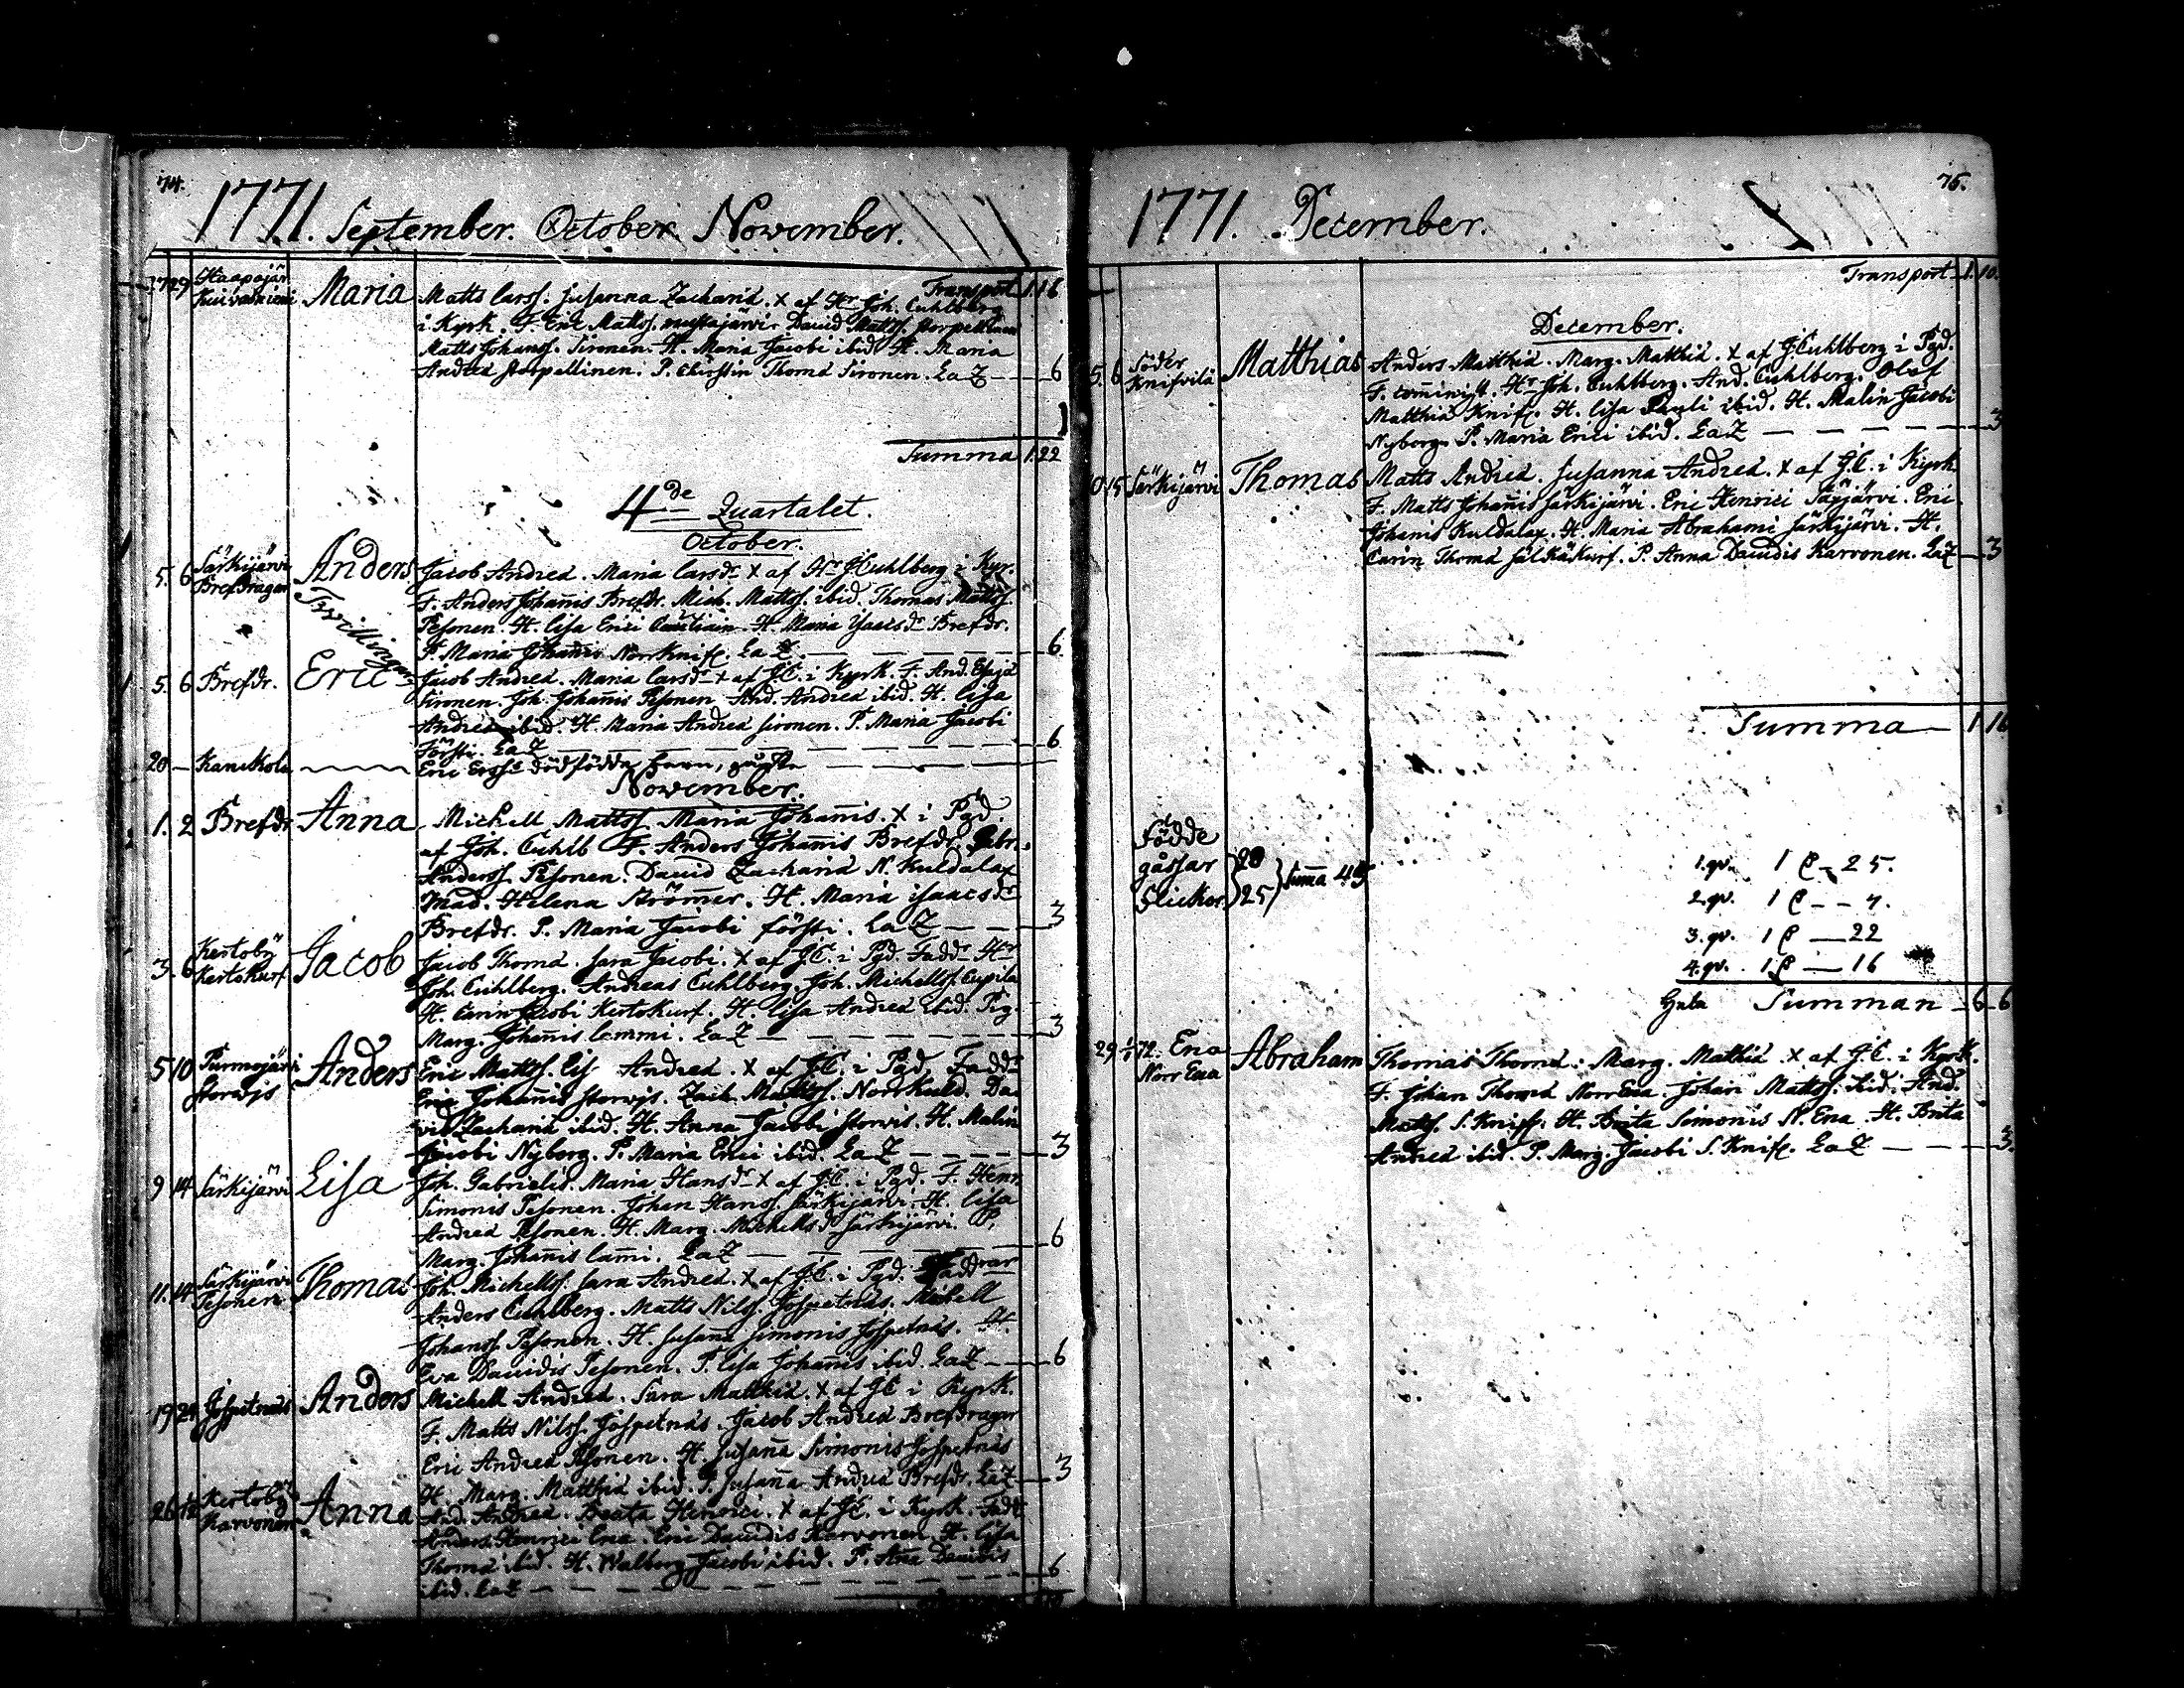 74.
1771. September. October. November.
Transport 1.16
27 29 Haapajär Maria Matts Larss. Susanna Zachariæ. x af Hr Joh. Cuhlberg
i Kyrk. F. Eric Mattss. David Mattss.
Matts Johanss. Sironen. H. Maria Jacobi ibid. H. Maria
Andreæ P. Christin Thomæ Sironen. LaZ — 6
Summa 1.22
4de Quartalet.
October.
5. 6 Särkijärvi Brefdragar Anders Jacob Andreæ. Maria Larsdr x af Hr J Cuhlberg i Kyr.
F. Anders Johañis Brefdr. Mich. Mattss. ibid. Thomas Mattss.
Pesonen. H. Lisa Erici H. Maria Isaacsdr Brefdr.
P. Maria Johañis Norrknif. LaZ. — 6
Tvillingar
5. 6 Brefdr. Eric Jacob Andreæ. Maria Larsdr x af J.C. i Kyrk. F. And. Esajæ
Sironen. Joh. Johañis Pesonen. And. Andreæ ibid. H. Lisa
Andreæ ibid. H. Maria Andreæ Sironen. P. Maria Jacobi
Försti. LaZ — 6
20 — Kanckola Eric Erss: dödfödda barn,
November.
1. 2 Brefdr Anna Michell Mattss. Maria Johañis. x i Pgd.
af Joh. Cuhlb F. Anders Johañis Brefdr. Gabr.
Anderss. Pesonen. David Zachariæ N. Kuldalax
Mad. Helena Strömer. H. Maria Isaacsdr
Brefdr. P. Maria Jacobi Försti. LaZ — 3
3. 6 Kertoby Kertokurf Jacob Jacob Thomæ. Sara Jacobi. x af J.C. i Pgd. Faddr Hr
Joh. Cuhlberg. Andreas Cuhlberg. Joh. Michellss. Eupila
H. Carin Jacobi Kertokurf. H. Lisa Andreæ ibid. Pig.
Marg. Johañis Lemmi. LaZ — 3
5 10 Purmojärvi Storvis Anders Eric Mattss. Lis Andreæ. x af J.C. i Pgd. Faddr
Eric Johañis Storvis. Zach. Mattss. Norrkuld. Da
vid Zachariæ ibid. H. Anna Jacobi Storvis. H. Malin
Jacobi Nyborg. P. Maria Erici ibid. LaZ — 3
9 14 Särkijärvi Lisa Joh. Gabrielis. Maria Hansdr x af J.C. i Pgd. F. Henr
Simonis Pesonen. Johan Hanss. Särkijärvi. H. Lisa
Andreæ Pesonen. H. Marg. Michellsdr Särkijärvi. P.
Marg. Johañis Lami. LaZ — 6
11. 14 Särkijärvi Pesonen Thomas Joh. Michellss. Sara Andreæ. x af J.C. i Pgd. Faddrar
Anders Cuhlberg. Matts Nilss. Jospetnäs. Michell
Johanss. Pesonen. H. Susaña Simonis Jospetnäs. H.
Eva Davidis Pesonen. P. Lisa Johañis ibid. LaZ — 6
19 24 Jospetnäs Anders Michell Andreæ. Sara Matthiæ. x af JC i Kyrk.
F. Matts Nilss. Jospetnäs. Jacob Andreæ Brefdragar
Eric Andreæ Pesonen. H. Susaña Simonis Jospetnäs
H. Marg. Matthiæ ibid. P. Susaña Andreæ Brefdr. LaZ — 3
26 Kertoby Karvonen Anna And. Andreæ. Beata Henrici. x af J.C. i Kyrk. Fadr
Anders Henrici Ena. Eric Davidis Karvonen. H. Lisa
Thomæ ibid. H. Walborg Jacobi ibid. P. Aña Davidis
ibid. LaZ — 6
75.
1771. December.
Transport 1.10.
December.
5. 6 Söder Knifvilä Matthias Anders Matthiæ. Marg. Matthiæ. x af J. Cuhlberg i Pgd.
F. Hr Joh. Cuhlberg. And. Cuhlberg. Olof
Matthiæ Knif. H. Lisa Pauli ibid. H. Malin Jacobi
Nyborg. P. Maria Erici ibid. LaZ — 3
10 15 Särkijärvi Thomas Matts Andreæ. Susanna Andreæ. x af J.C. i Kyrk
F. Matts Johañis Särkijärvi. Eric Henrici Eric
Johanis Kuldalax. H. Maria Abrahami Särkijärvi. H.
Carin Thomæ P. Anna Davidis Karvonen. LaZ — 3
Summa 1 16
Födde
gåssar 20
Flickor 25
Suma 45
1. qv. 1 P — 25.
2. qv. 1 P — 7.
3. qv. 1 P — 22
4. qv. 1 P — 16
Hela Summan 6 6
29 1/1 72. Ena Norr Ena Abraham Thomas Thomæ. Marg. Matthiæ x af J.C. i Kyrk.
F. Johan Thomæ Norr Ena. Johan Mattss. ibid. And.
Mattss. S. Knif. H. Brita Simonis N. Ena. H. Brita
Andreæ ibid. P. Marg. Jacobi S. Knif. LaZ — 3.